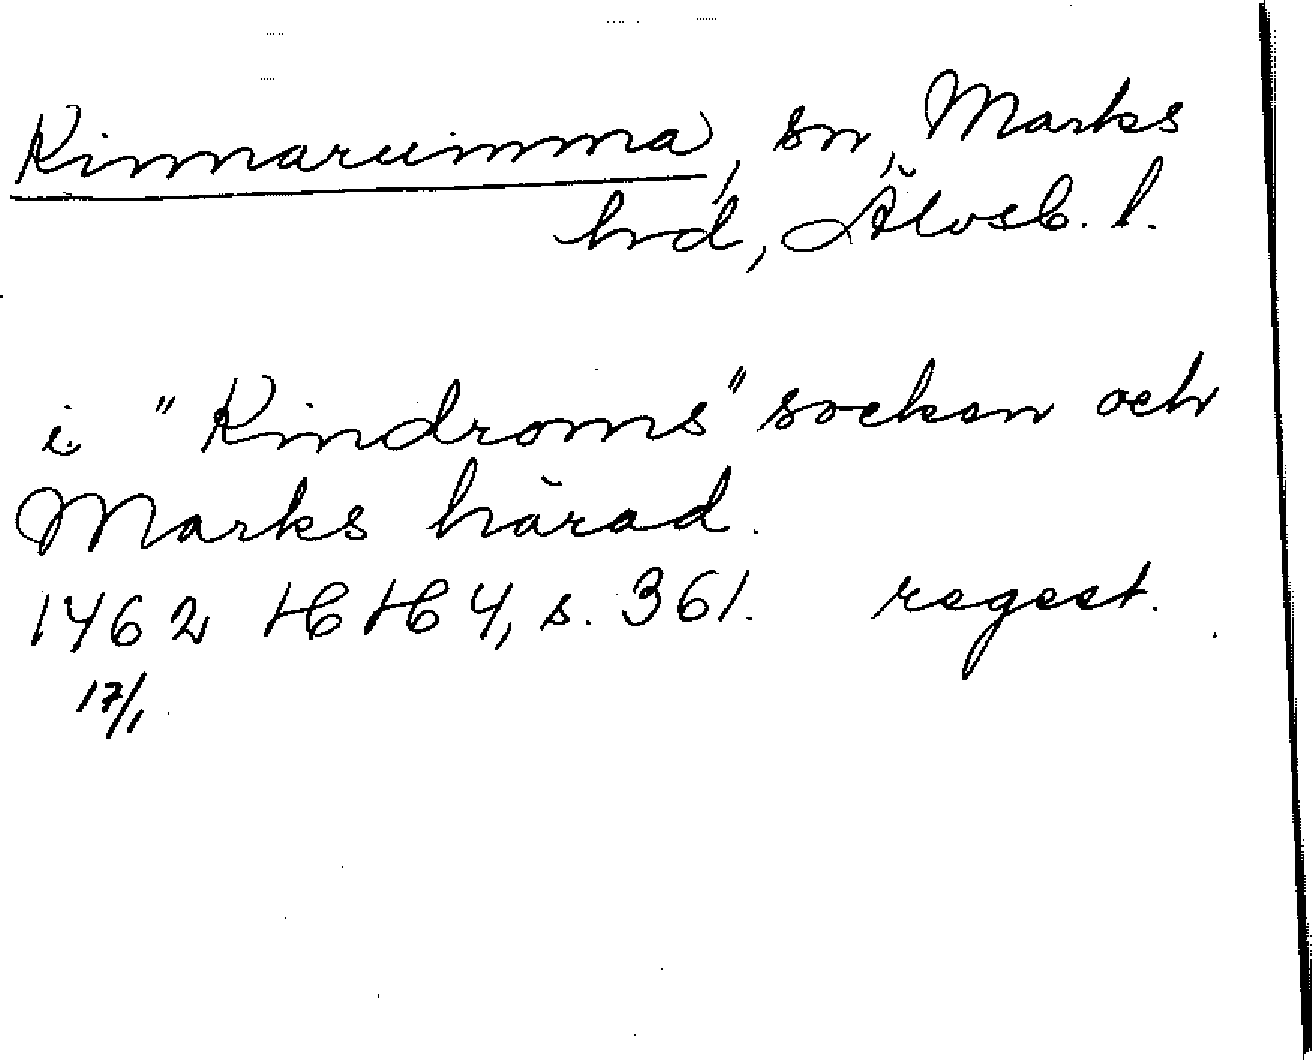 Kinnarumma, sn, Marks
hrd, Älvsb. l.
i "Kindroms" socken och
Marks härad.
1462 HH 4, s. 361. regest.
17/1